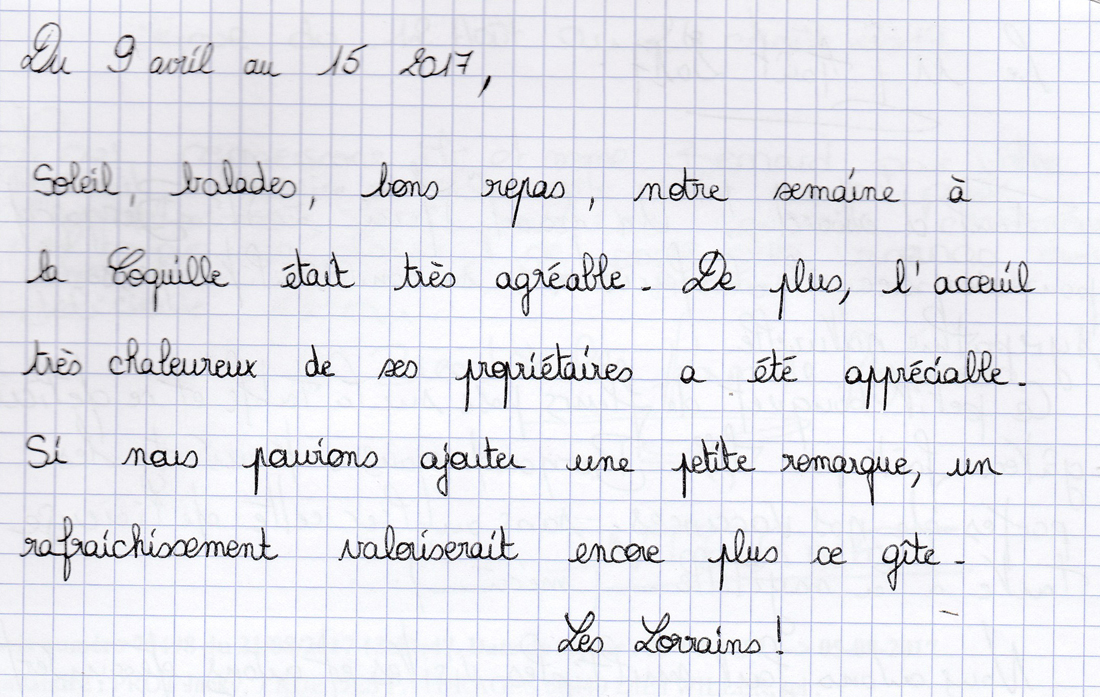 Du 9 avril au 15 2017,
Soleil, balades, bons repas, notre semaine à
la Coquille était très agréable. De plus, l'acceuil
très chaleureux de ses propriétaires a été appréciable.
Si nous pouvions ajouter une petite remarque, un
rafraichissement valoriserait encore plus ce gîte.
Les Lorrains !